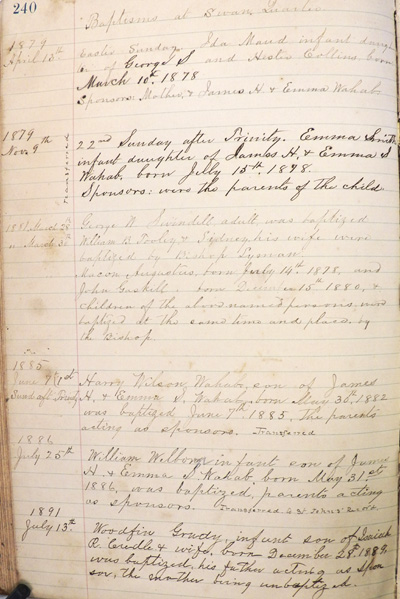 240
Baptisms at Swan Quarter
1879
April 13th
Easter Sunday. Ida Maud infant daugh
of George S and Hester Collins, born
March 10th 1878
Sponsors: Mother, & James H. & Emma Wahab
1879
Nov. 9th
Transferred
22nd Sunday after Trinity. Emma Smith,
infant daughter of James H. & Emma S
Wahab, born July 15th 1878.
Sponsors: were the parents of the child
George W Swindell, adult, was baptized
William B. & Sydney his wife were
baptized by Bishop Lyman.
Augustus, born July 14th 1878, and
John Gaskill born December 15th 1880, &
children of the above named persons, were
baptized at the same time and place, by
the Bishop.
1885
June 7th 1st
Sund aft Trinity
Harry Wilson Wahab, son of James
H. & Emma S. Wahab, born May 30th 1882
was baptized June 7th 1885, the parents
acting as sponsors. Transferred
1886
July 25th
William Wilbour, infant son of James
H. & Emma S. Wahab, born May 31st
1886, was baptized, parents acting
as sponsors. Transferred
1891
July 13th
Woodfin Grady, infant son of Isaiah
R. Credle & wife, born December 28th 1889.
was baptized, his father acting as spon
sor, the mother being unbaptized.